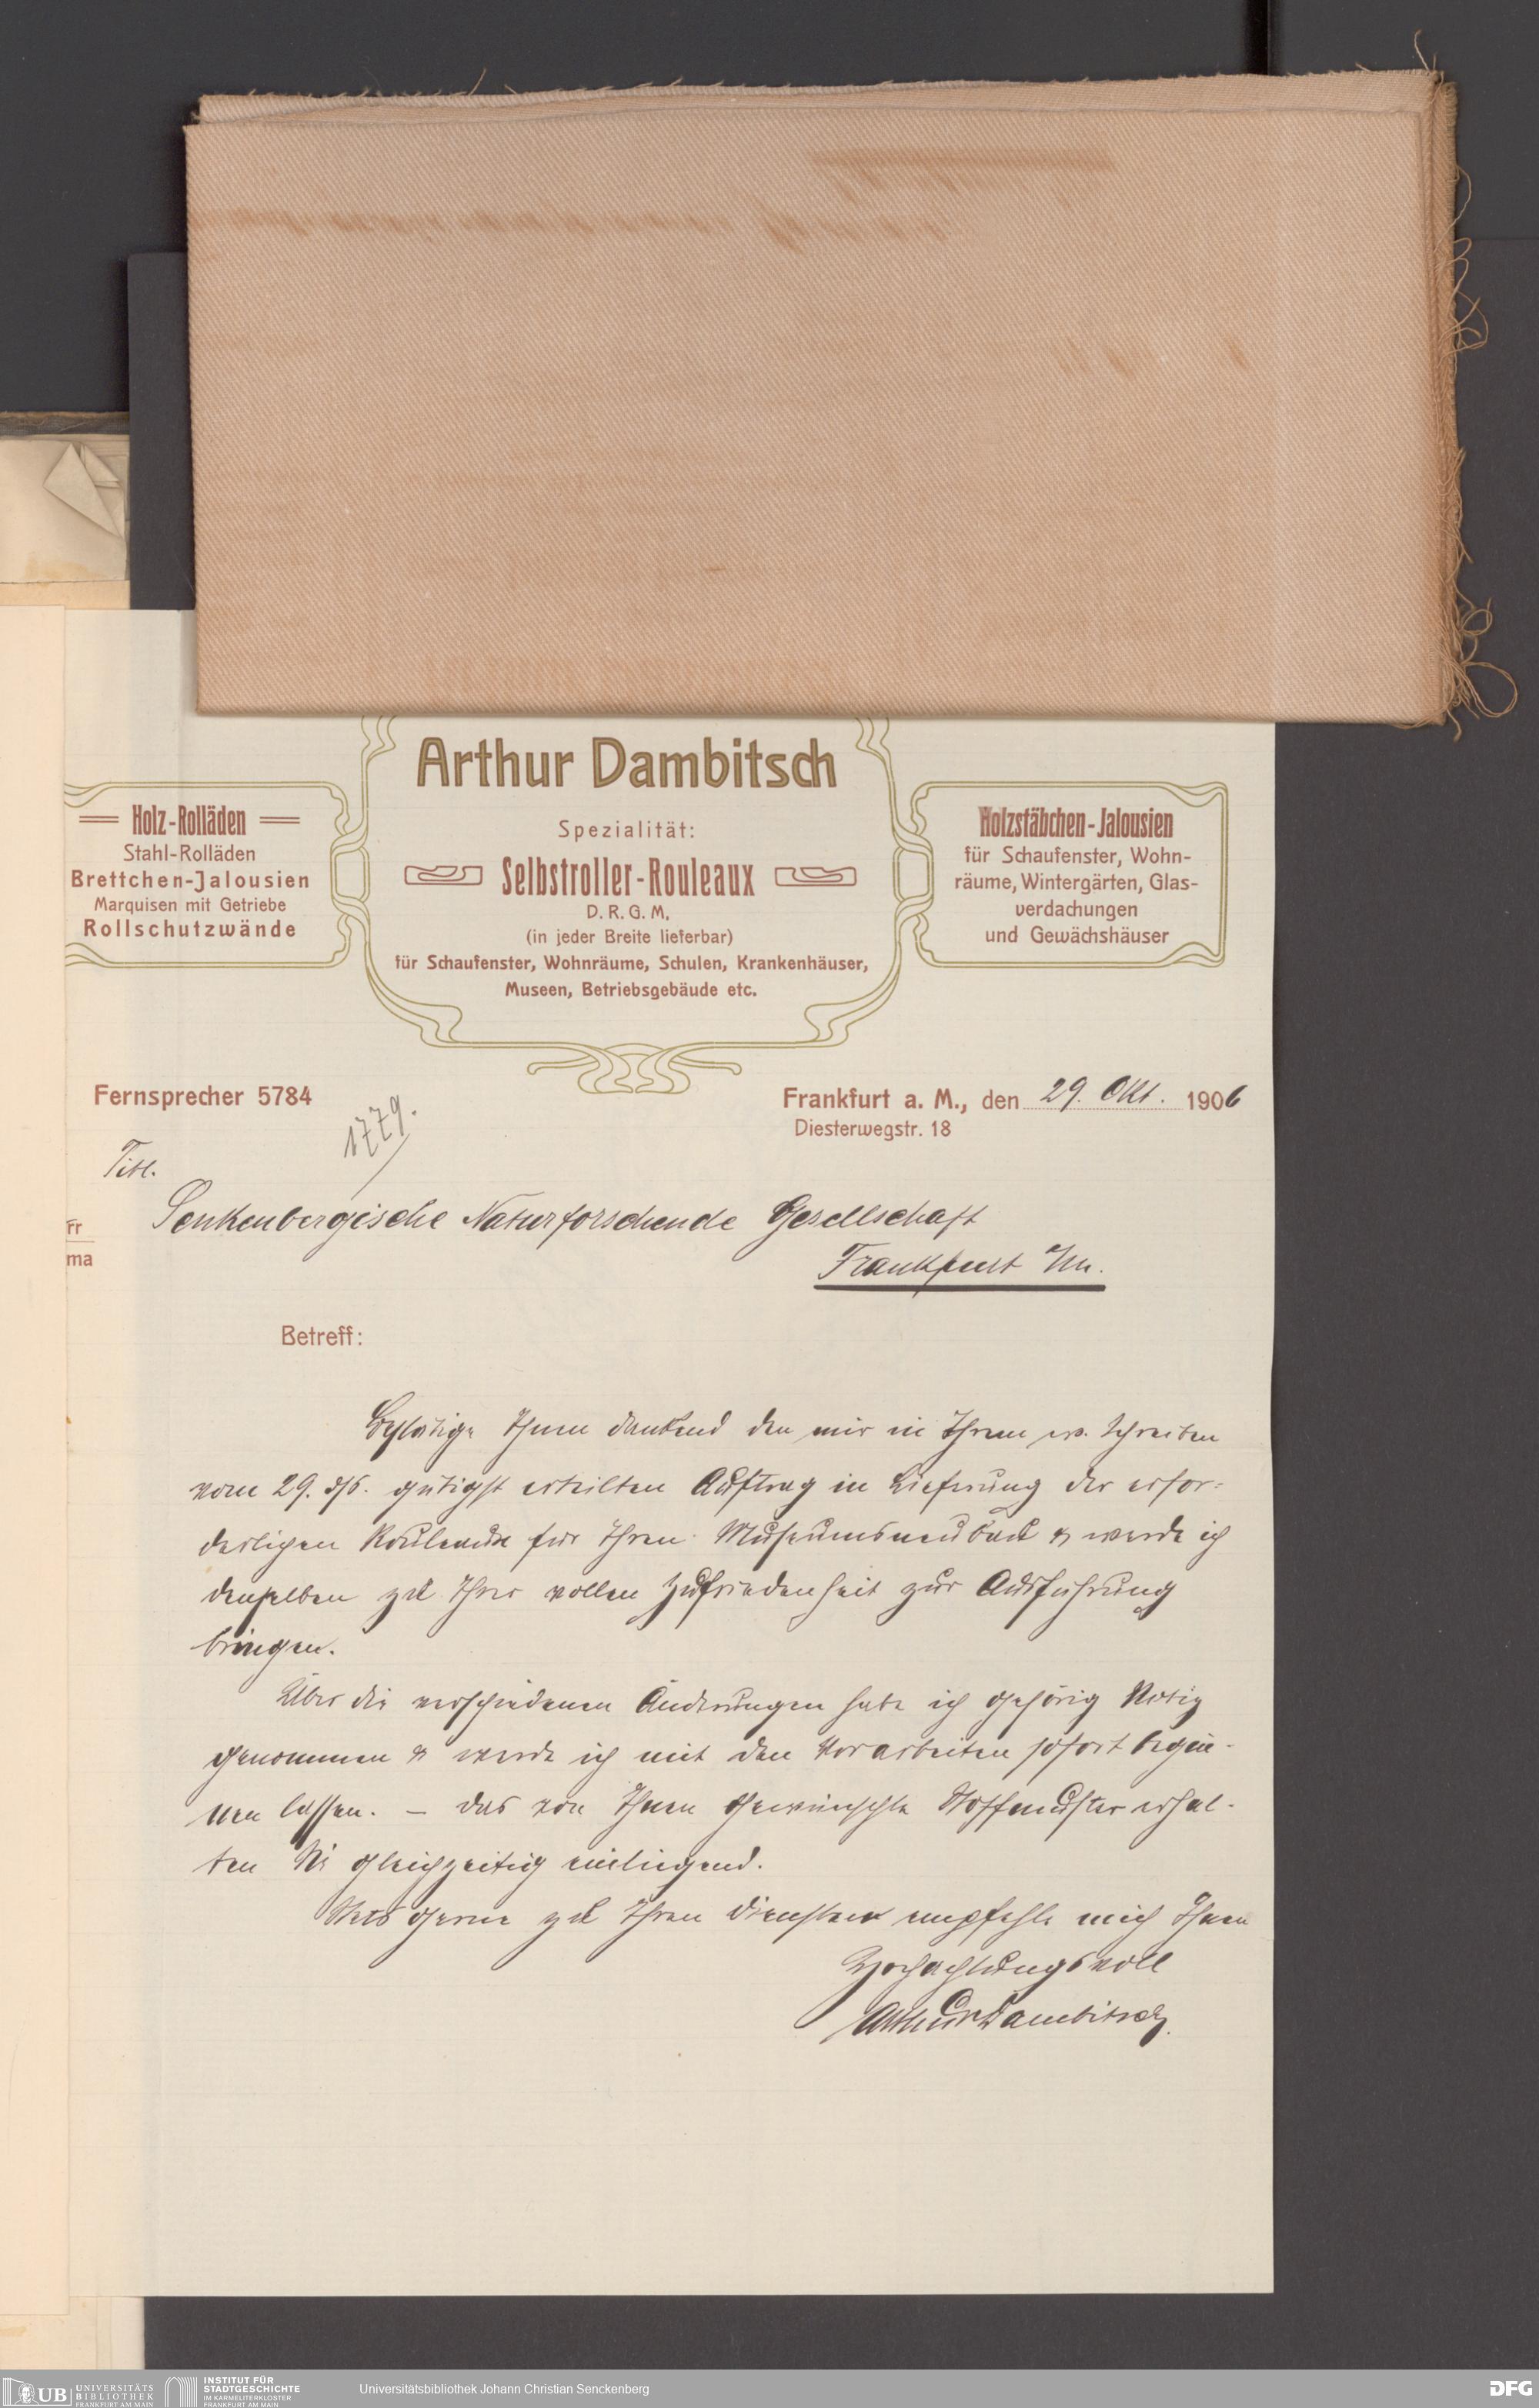 Arthur Dambitsch
Spezialität:
Selbstroller-Rouleaux
D. R. G. M.
(in jeder Breite lieferbar)
für Schaufenster, Wohnräume, Schulen, Krankenhäuser,
Museen, Betriebsgebäude etc.
Holz-Rolläden
Stahl-Rolläden
Brettchen-Jalousien
Marquisen mit Getriebe
Rollschutzwände
Holzstäbchen-Jalousien
für Schaufenster, Wohn-
räume, Wintergärten, Glas-
verdachungen
und Gewächshäuser
Fernsprecher 5784
Frankfurt a. M., den 29. Okt. 1906
Diesterwegstr. 18
1779.
Titl.
Senkenbergische Naturforschende Gesellschaft
Frankfurt a/m.
Fr
ma
Betreff:
Bestätige Ihnen dankend den mir in Ihrem w. Schreiben
vom 29. ds. gütigst erteilten Auftrag in Lieferung der erfor-
derlichen Rouleaux für Ihren Museumsneubau & werde ich
denselben zu Ihrer vollen Zufriedenheit zur Ausführung
bringen.
Über die verschiedenen Änderungen habe ich gehörig Notiz
genommen & werde ich mit den Vorarbeiten sofort begin-
nen lassen. – Das von Ihnen gewünschte Stoffmuster erhal-
ten Sie gleichzeitig einliegend.
Stets gerne zu Ihren Diensten empfehle mich Ihnen
Hochachtungsvoll
Arthur Dambitsch.
UB UNIVERSITÄTS
BIBLIOTHEK
FRANKFURT AM MAIN
INSTITUT FÜR
STADTGESCHICHTE
IM KARMELITERKLOSTER
FRANKFURT AM MAIN
Universitätsbibliothek Johann Christian Senckenberg
DFG